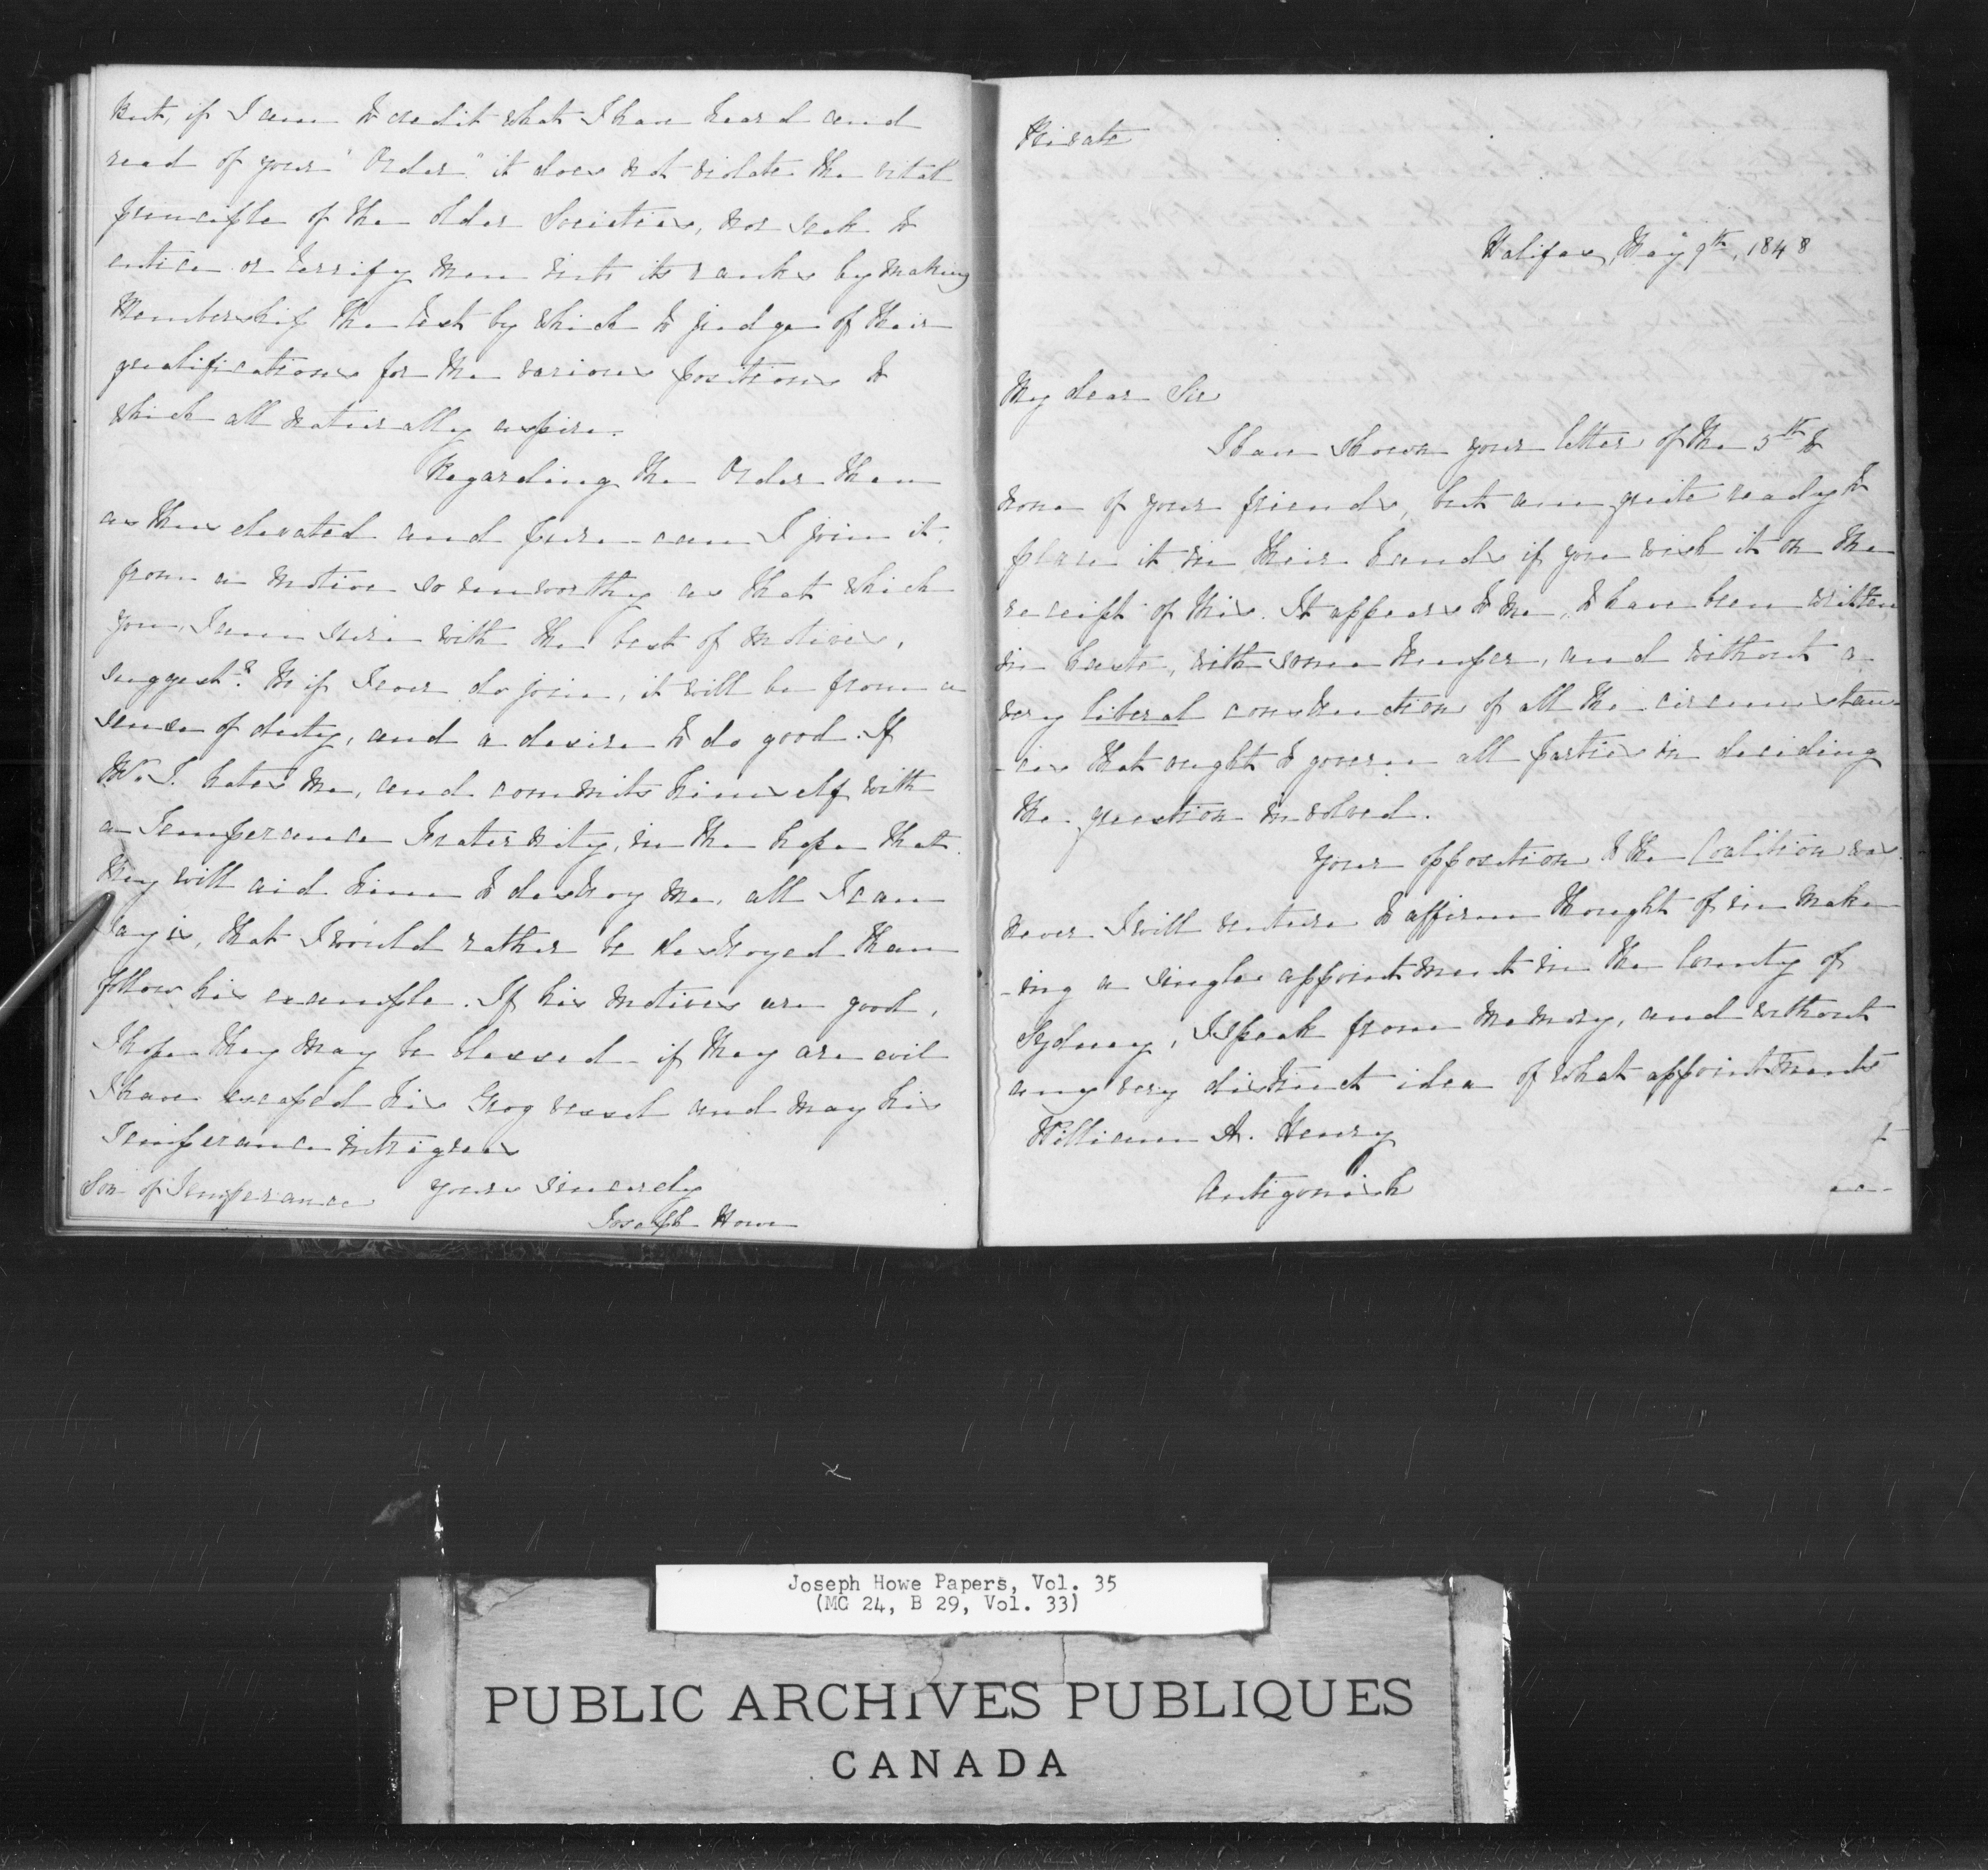 But, if I am to credit what I have heard and
read of your "Order" it does not violate the vital
principle of the older Societies, nor seek to
entice or terrify men into its ranks by making
Membership the test by which to judge of their
qualifications for the various positions to
which all naturally aspire.
Regarding the Order then
as thus elevated and pure - can I join it
from a motive so unworthy as that which
you, I am sure with the best of motives,
suggest? No if I ever do join, it will be from a
sense of duty, and a desire to do good. If
Mr. J. hates me, and commits himself with
a Temperance Fraternity, in the hope that
they will aid him to destroy me, all I can
say is, that I would rather be destroyed than
follow his example. If his motives are good,
I hope they may be blessed - if they are evil
I have escaped his Grog vessel and may his
Temperance intrigues
Son of Temperance Yours sincerely
Joseph Howe
Private
Halifax, May 9th, 1848
My dear Sir
I have shown your letter of the 5th to
none of your friends, but am quite ready to
place it in their hands if you wish it on the
receipt of this. It appears to me, to have been written
in haste, with some temper, and without a
very liberal construction of all the circumstan-
-ces that ought to govern all parties in deciding
the question involved.
Your opposition to the Coalition was
never I will venture to affirm thought of in mak-
-ing a single appointment in the County of
Sydney, I speak from memory, and without
any very distinct idea of what appointments
William A. Henry
Antigonish
Joseph Howe Papers, Vol. 35
(MG 24, B 29, Vol. 33)
PUBLIC ARCHIVES PUBLIQUES
CANADA